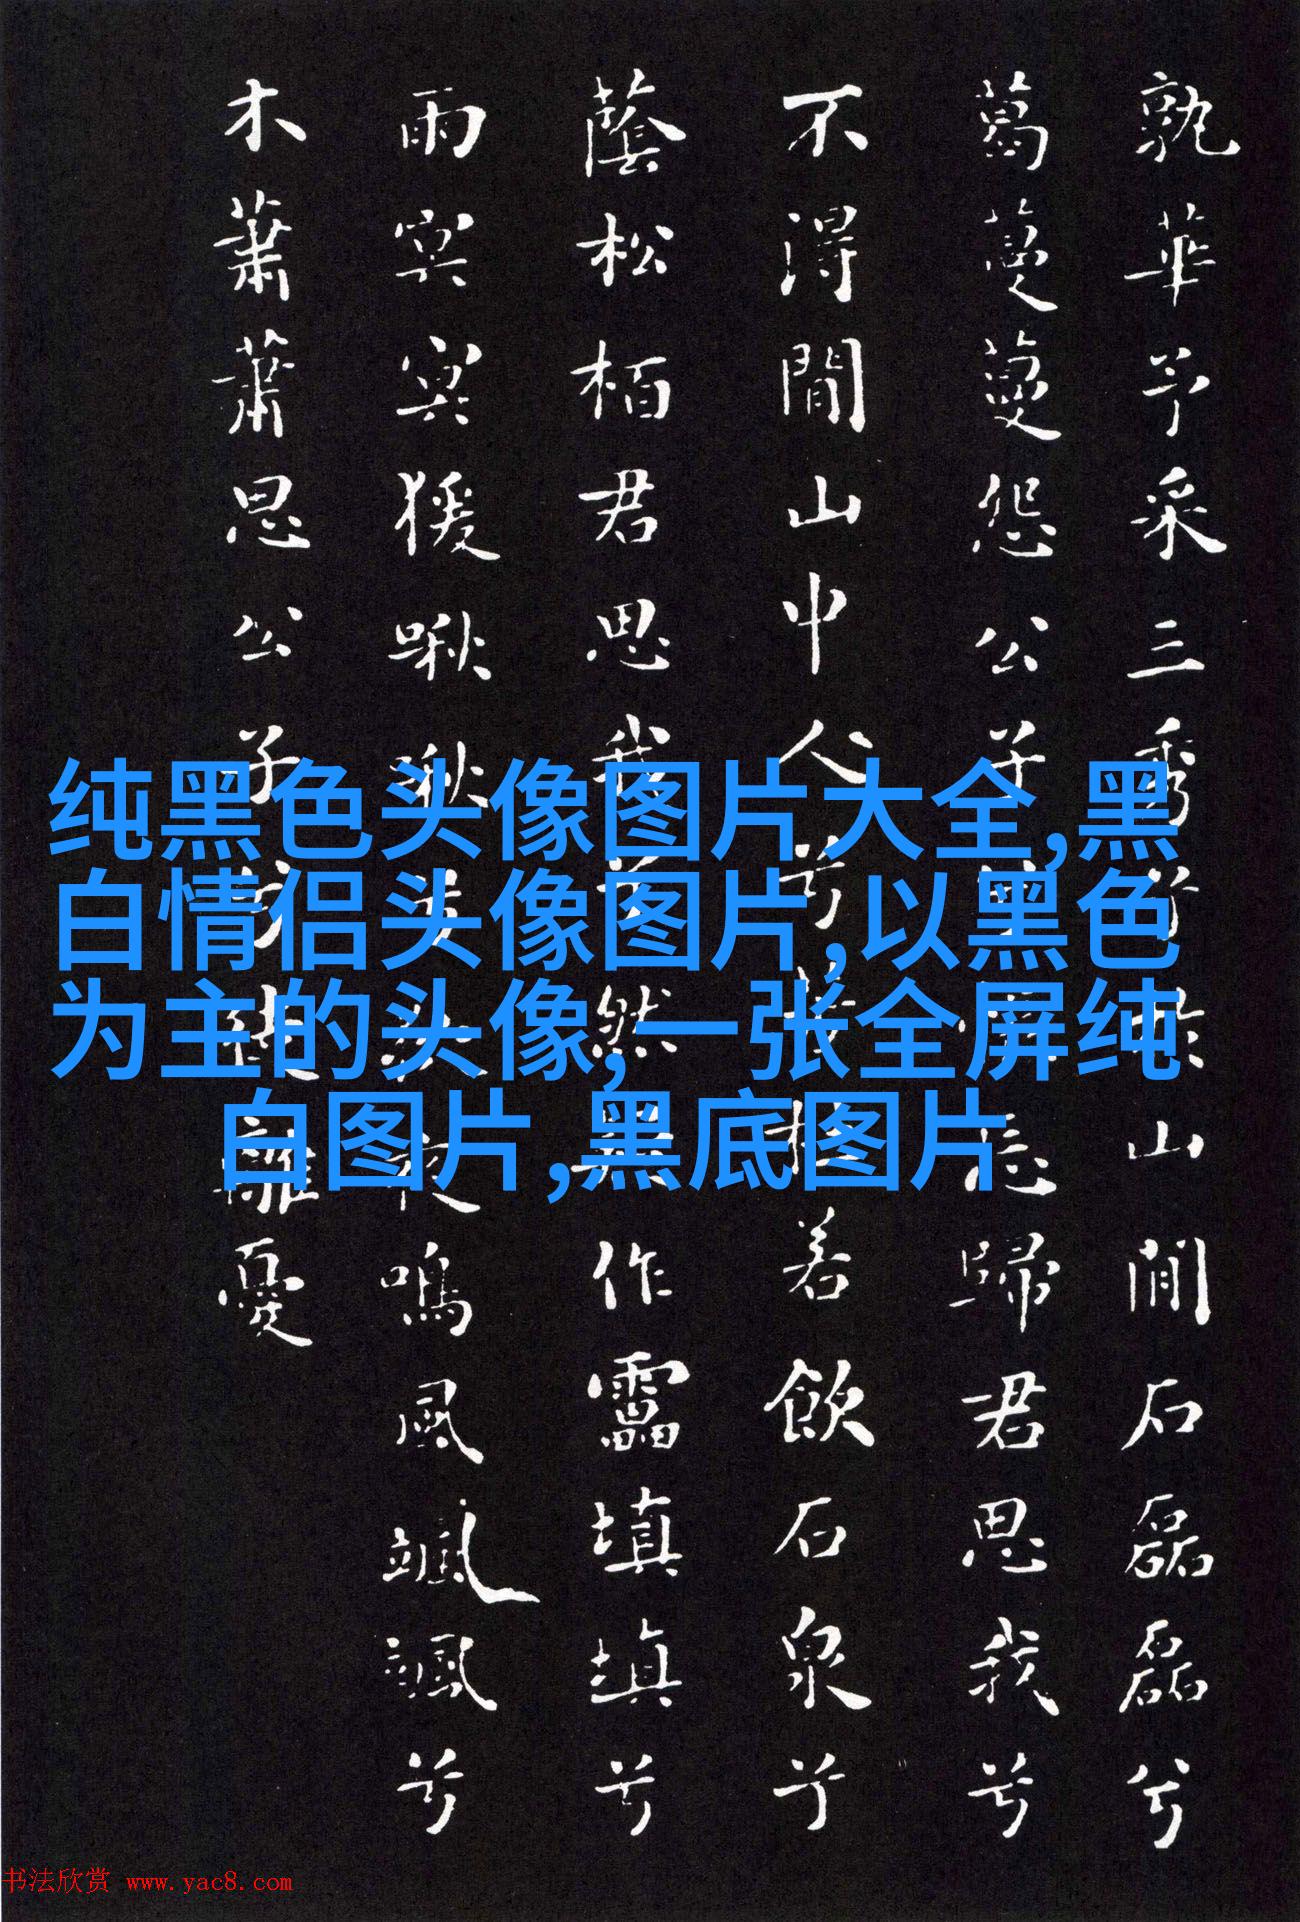 孰華予采三秀兮於山間石磊磊兮
葛蔓蔓怨公子忘歸君思我兮
不得間山中人兮芳杜若飲石泉兮
蔭松栢君思我兮然疑作靁填填兮
雨冥冥猨啾啾兮狖夜鳴風颯颯兮
木蕭蕭思公子兮徒離憂
纯黑色头像图片大全,黑
白情侣头像图片,以黑色
为主的头像,一张全屏纯
白图片,黑底图片
书法欣赏 www.yac8.com